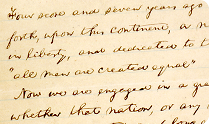 Four score and seven years ago
forth, upon this continent, a n
in liberty, and dedicated to t
"all men are created equal"
Now we are engaged in a gre
whether that nation, or any